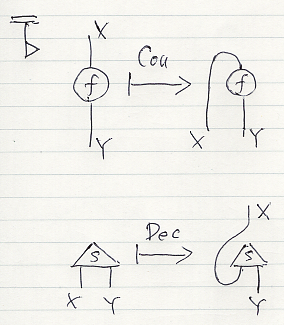 X
Cou
f
f
Y
X
Y
Dec
X
S
S
X
Y
Y